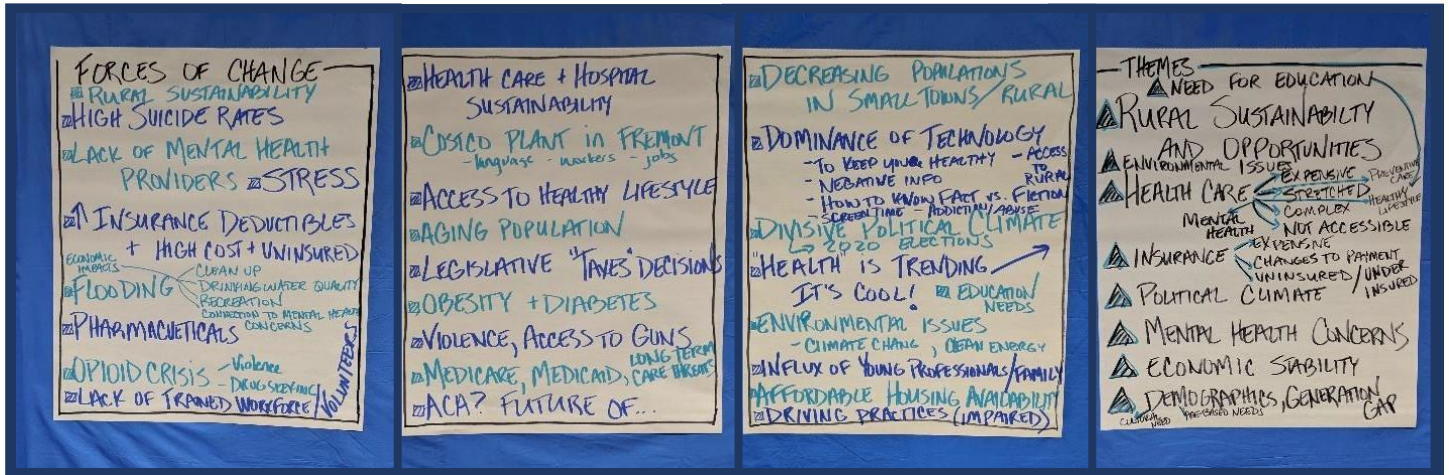 FORCES OF CHANGE
RURAL SUSTAINABILITY
HIGH SUICIDE RATES
LACK OF MENTAL HEALTH
PROVIDERS STRESS
↑ INSURANCE DEDUCTIBLES
+ HIGH COST + UNINSURED
ECONOMIC
IMPACTS
FLOODING
CLEAN UP
DRINKING WATER QUALITY
RECREATION
CONNECTION TO MENTAL HEALTH
CONCERNS
PHARMACUETICALS
OPIOID CRISIS - Violence
LACK OF TRAINED WORKFORCE/
VOLUNTEERS
HEALTH CARE + HOSPITAL
SUSTAINABILITY
COSTCO PLANT in FREMONT
- language - workers - jobs
ACCESS TO HEALTHY LIFESTYLE
AGING POPULATION
LEGISLATIVE "TAXES" DECISIONS
OBESITY + DIABETES
VIOLENCE, ACCESS TO GUNS
MEDICARE, MEDICAID, LONG TERM
CARE THREATS
ACA? FUTURE OF...
DECREASING POPULATIONS
IN SMALL TOWNS/RURAL
DOMINANCE OF TECHNOLOGY
- TO KEEP YOU HEALTHY
- NEGATIVE INFO
- HOW TO KNOW FACT vs. FICTION
- SCREEN TIME - ADDICTION/ABUSE
- ACCESS
TO
RURAL
DIVISIVE POLITICAL CLIMATE
↳ 2020 ELECTIONS
"HEALTH" IS TRENDING
IT'S COOL! EDUCATION
NEEDS
ENVIRONMENTAL ISSUES
- CLIMATE CHANG, CLEAN ENERGY
INFLUX OF YOUNG PROFESSIONALS/FAMILY
AFFORDABLE HOUSING AVAILABILITY
DRIVING PRACTICES (IMPAIRED)
THEMES
NEED FOR EDUCATION
RURAL SUSTAINABILTY
AND OPPORTUNITIES
ENVIRONMENTAL ISSUES
HEALTH CARE
EXPENSIVE
STRETCHED
COMPLEX
NOT ACCESSIBLE
PREVENTIVE
CARE
HEALTHY
LIFESTYLE
MENTAL
HEALTH
INSURANCE
EXPENSIVE
CHANGES TO PAYMENT
UNINSURED/UNDER
INSURED
POLITICAL CLIMATE
MENTAL HEALTH CONCERNS
ECONOMIC STABILITY
DEMOGRAPHICS, GENERATION
GAP
CULTURAL
NEED
AGE BASED NEEDS